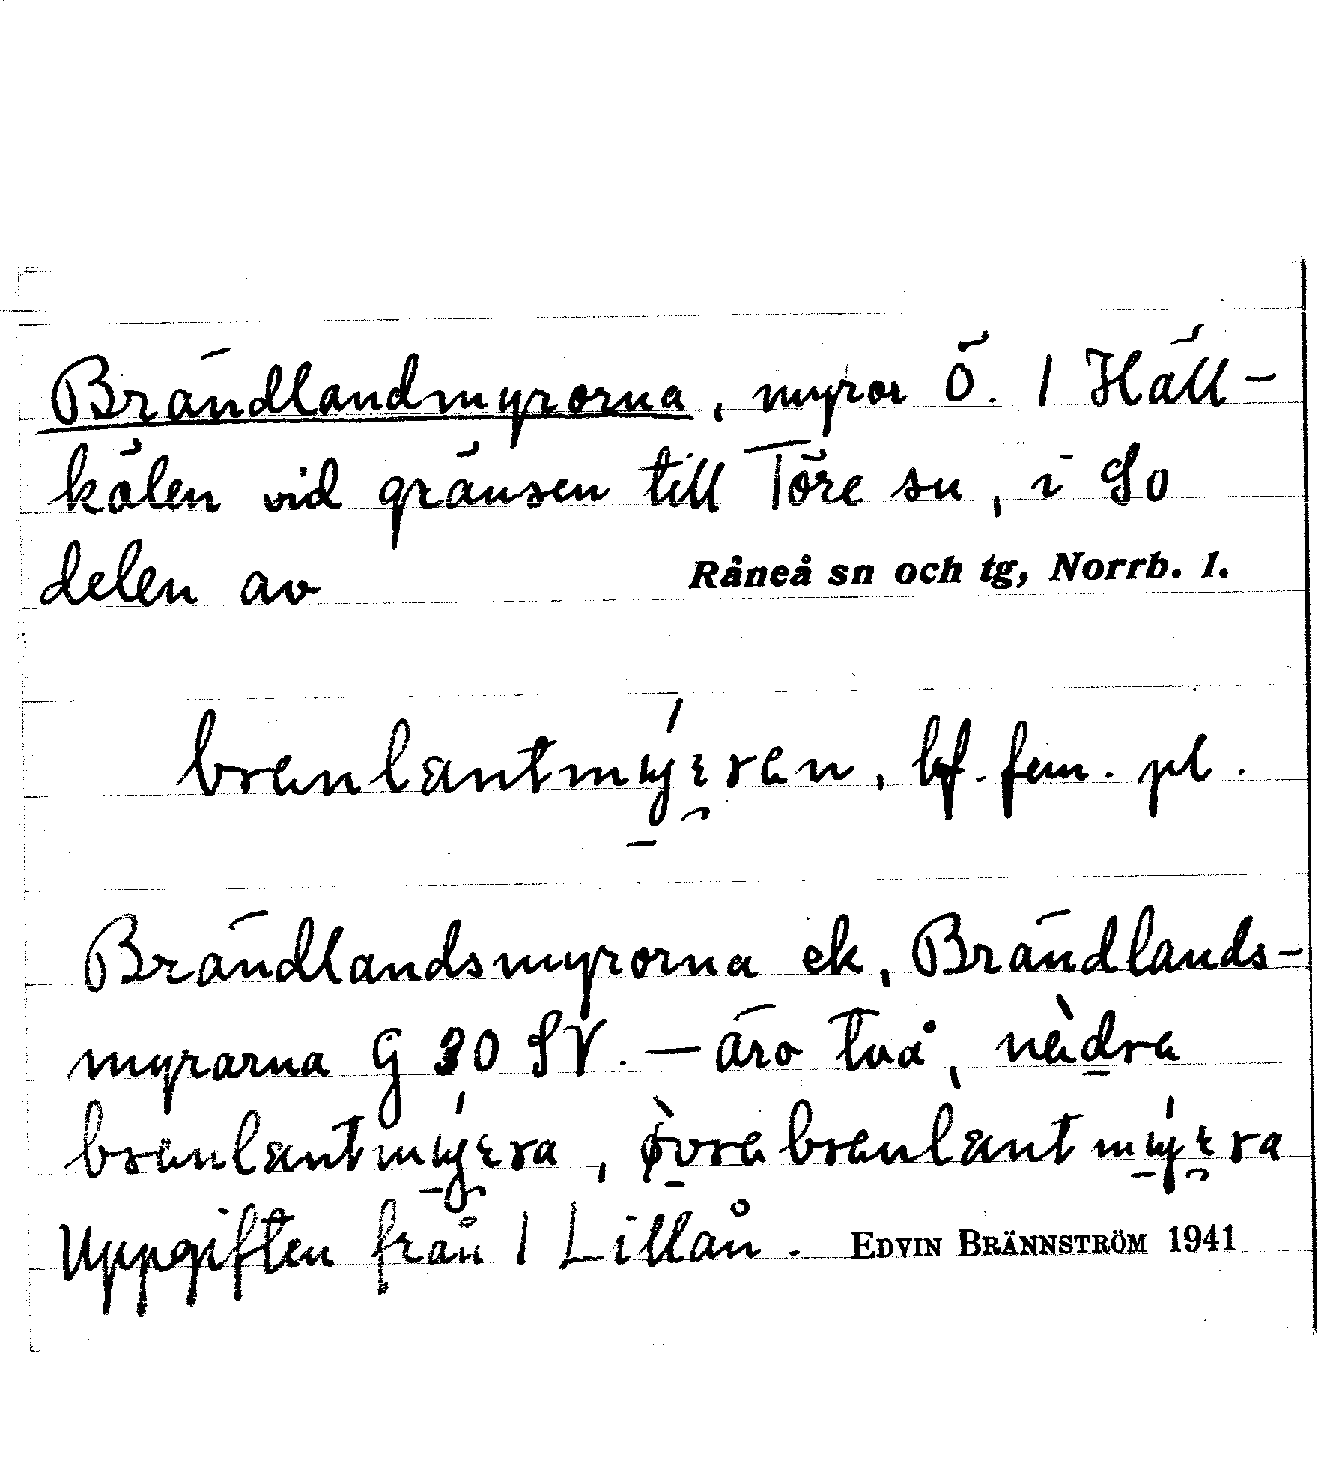 Brändlandmyrorna, myror Ö. / Häll-
kölen vid gränsen till Töre sn, i So
delen av Råneå sn och tg, Norrb. l.
branlantmýɛran, bf. fem. pl.
Brändlandsmyrorna ek, Brändlands-
myrarna G 30 SV. — äro två, nèdra
branlantmýɛra, òvra branlantmýɛra
Uppgiften från / Lillån. EDVIN BRÄNNSTRÖM 1941